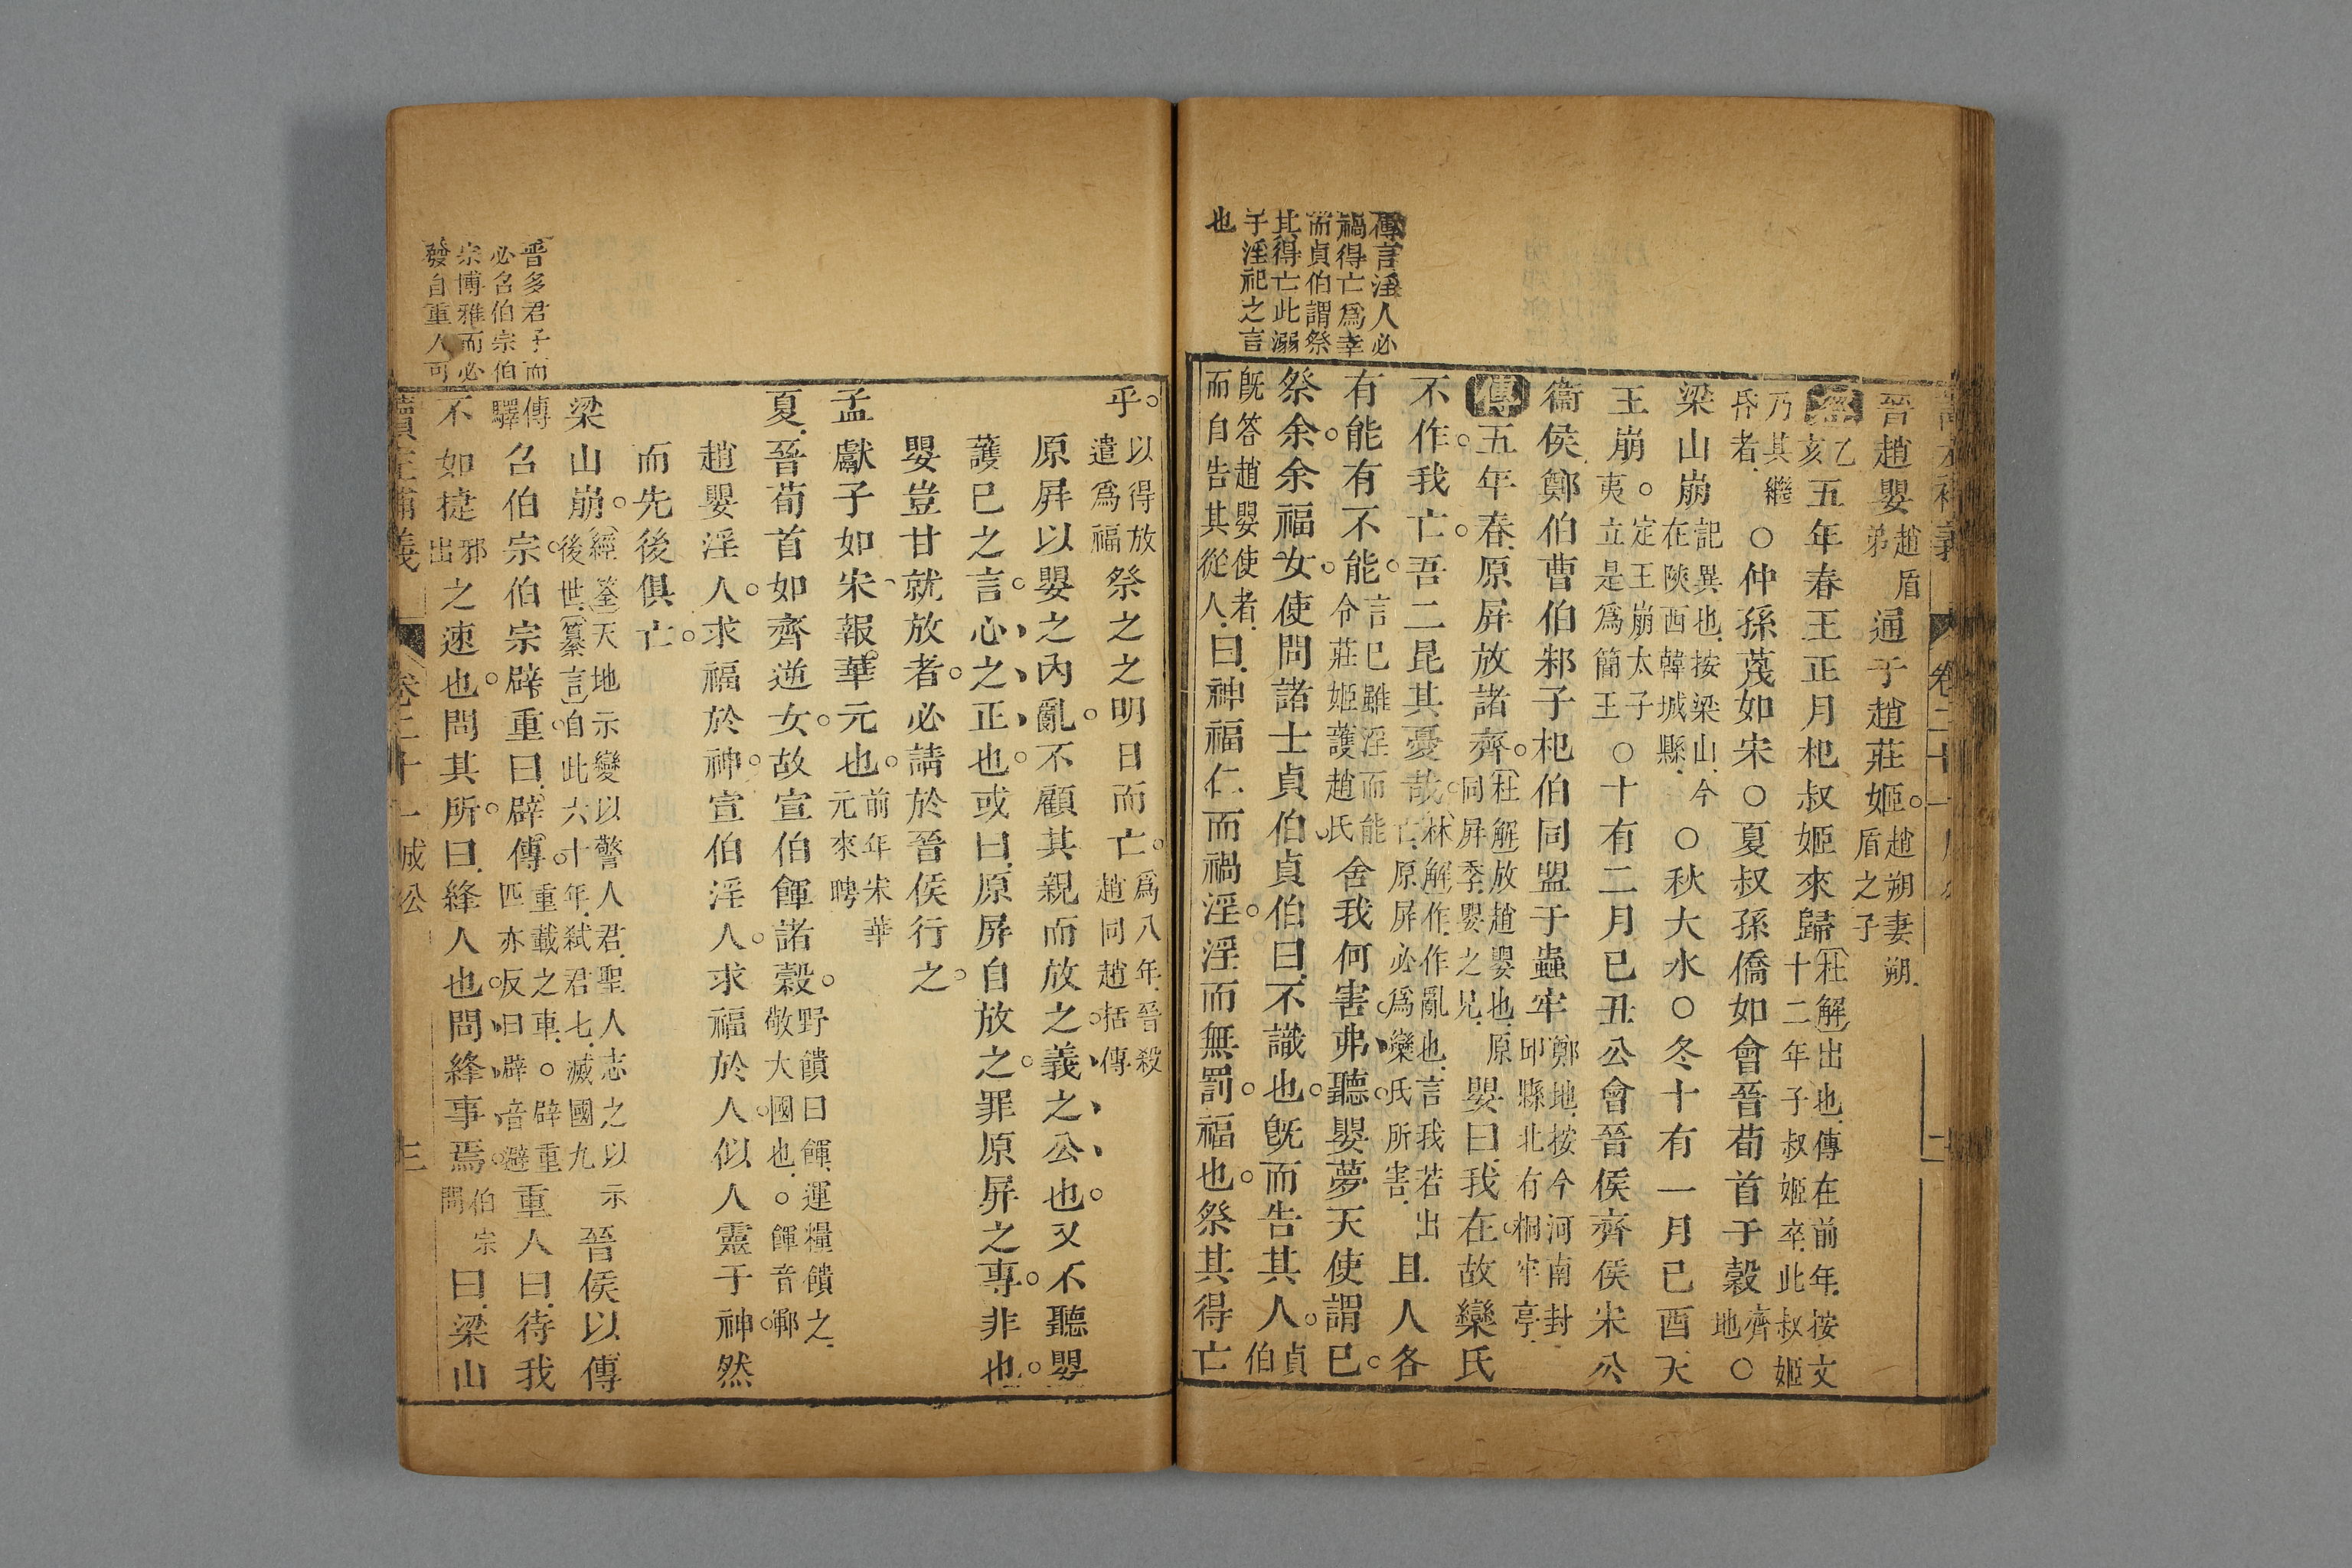 傳言淫人必
禍得亡爲幸
而貞伯謂祭
其得亡此溺
于淫祀之言
也
晉趙嬰趙盾弟通于趙莊姬趙朔妻朔盾之子
經乙亥五年春王正月杞叔姬來歸杜解出也傳在前年按文十二年子叔姬卒此叔姬
乃其繼昏者○仲孫蔑如宋○夏叔孫僑如會晉荀首于穀齊地○
梁山崩記異也按梁山今在陝西韓城縣○秋大水○冬十有一月己酉天
王崩定王崩太子夷立是爲簡王○十有二月己丑公會晉侯齊侯宋公
衞侯鄭伯曹伯邾子杞伯同盟于蟲牢鄭地按今河南封邱縣北有桐牢亭
傳五年春原屏放諸齊杜解放趙嬰也原同屏季嬰之兄嬰曰我在故欒氏
不作我亡吾二昆其憂哉林解作作亂也言我若出亡原屏必爲欒氏所害且人各
有能有不能言己雖淫而能令莊姬護趙氏舍我何害弗聽嬰夢天使謂己
祭余余福女使問諸士貞伯貞伯曰不識也既而告其人貞伯
既答趙嬰使者而自告其從人曰神福仁而禍淫淫而無罰福也祭其得亡
乎以得放遣爲福祭之之明日而亡爲八年晉殺趙同趙括傳
原屏以嬰之內亂不顧其親而放之義之公也又不聽嬰
護己之言心之正也或曰原屏自放之罪原屏之專非也
嬰豈甘就放者必請於晉侯行之
孟獻子如宋報華元也前年宋華元來聘
夏晉荀首如齊逆女故宣伯餫諸穀野饋曰餫運糧饋之敬大國也○餫音鄆
趙嬰淫人求福於神宣伯淫人求福於人似人靈于神然
而先後俱亡
梁山崩經筌天地示變以警人君聖人志之以示後世纂言自此六十年弒君七滅國九晉侯以傳
傳驛召伯宗伯宗辟重曰辟傳重載之車○辟重匹亦反曰辟音避重人曰待我
不如捷邪出之速也問其所曰絳人也問絳事焉伯宗問曰梁山
晉多君子而
必召伯宗伯
宗博雅而必
發自重人可
卷二十一 成公